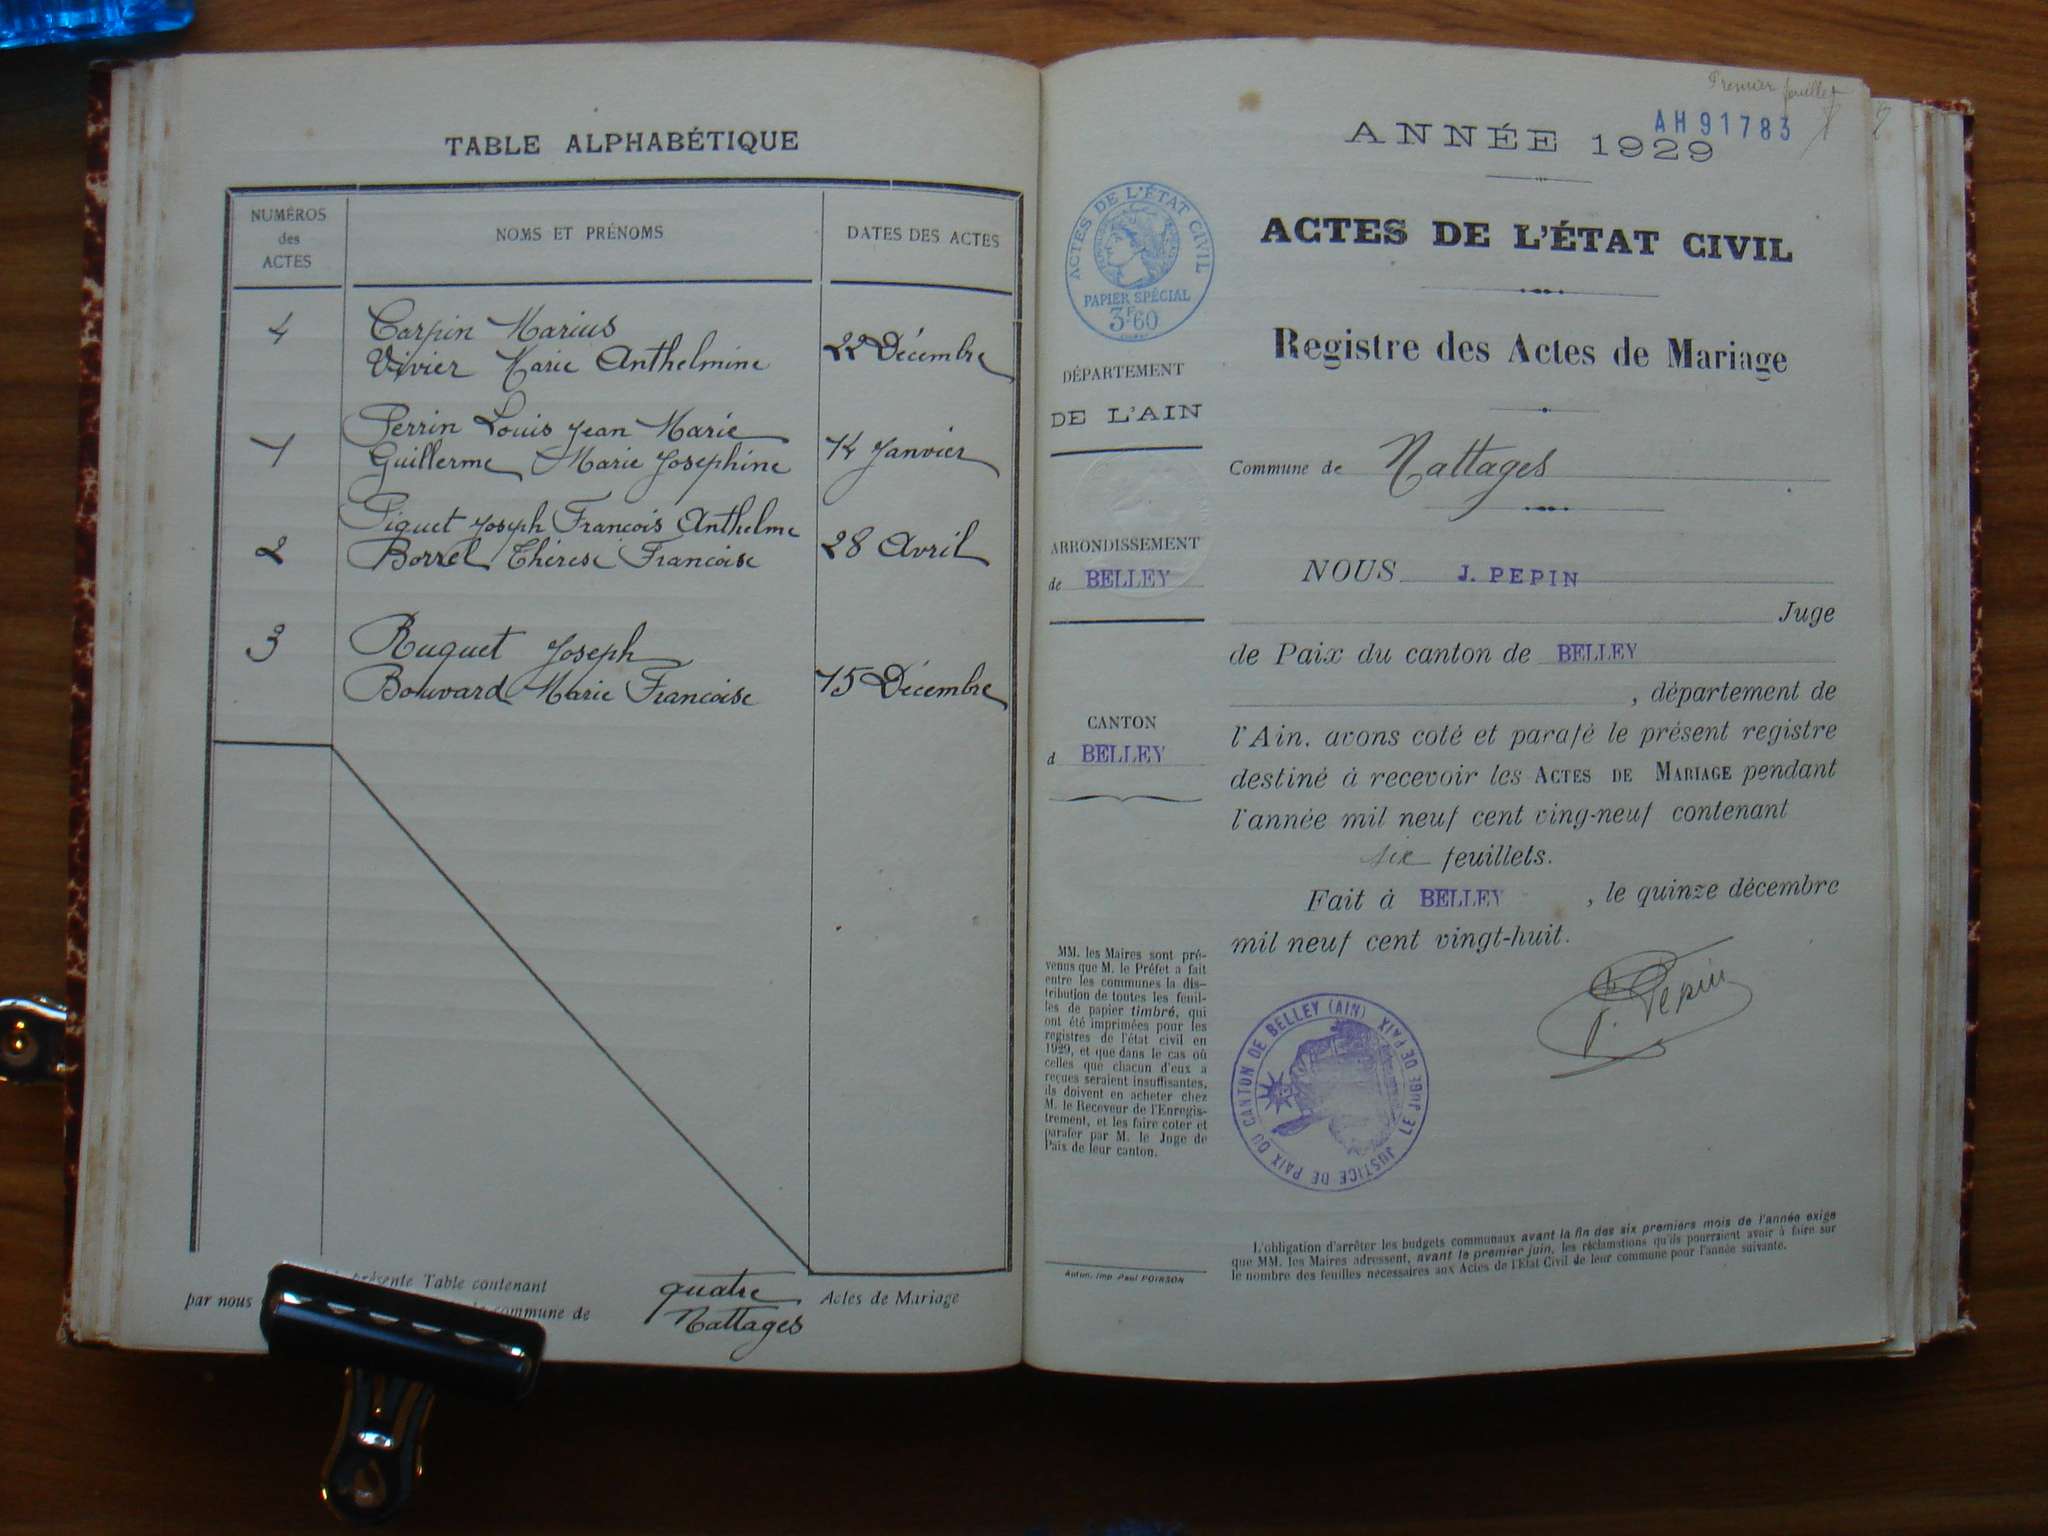 TABLE ALPHABÉTIQUE
NUMÉROS
des
ACTES
NOMS ET PRÉNOMS
DATES DES ACTES
4
Carpin Marius
Vivier Marie Anthelmine
22 Décembre
1
Perrin Louis Jean Marie
Guillerme Marie Josephine
14 Janvier
2
Piguet Joseph François Anthelme
Borrel Thérese Francoise
28 Avril
3
Ruguet Joseph
Bouvard Marie Francoise
15 Décembre
présente Table contenant quatre Actes de Mariage
par nous commune de Nattages
Premier feuillet
AH 91783
ANNÉE 1929
ACTES DE L'ÉTAT CIVIL
PAPIER SPÉCIAL
3F60
ACTES DE L'ÉTAT CIVIL
Registre des Actes de Mariage
DÉPARTEMENT
DE L'AIN
Commune de Nattages
ARRONDISSEMENT
de BELLEY
CANTON
d BELLEY
NOUS J. PEPIN
Juge
de Paix du canton de BELLEY
, département de
l'Ain, avons coté et parafé le présent registre
destiné à recevoir les ACTES DE MARIAGE pendant
l'année mil neuf cent ving-neuf contenant
six feuillets.
Fait à BELLEY , le quinze décembre
mil neuf cent vingt-huit.
J. Pepin
MM. les Maires sont pré-
venus que M. le Préfet a fait
entre les communes la dis-
tribution de toutes les feuil-
les de papier timbré, qui
ont été imprimées pour les
registres de l'état civil en
1929, et que dans le cas où
celles que chacun d'eux a
reçues seraient insuffisantes,
ils doivent en acheter chez
M. le Receveur de l'Enregis-
trement, et les faire coter et
parafer par M. le Juge de
Paix de leur canton.
JUSTICE DE PAIX DU CANTON DE BELLEY (AIN)
LE JUGE DE PAIX
L'obligation d'arrêter les budgets communaux avant la fin des six premiers mois de l'année exige
que MM. les Maires adressent, avant le premier juin, les réclamations qu'ils pourraient avoir à faire sur
le nombre des feuilles nécessaires aux Actes de l'Etat Civil de leur commune pour l'année suivante.
Autun. Imp. Paul POIRSON